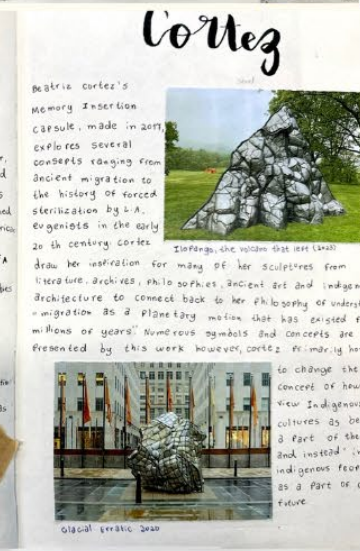 Cortez
Beatriz Cortez's
Memory Insertion
Capsule, made in 2017,
explores several
consepts ranging from
ancient migration to
the history of forced
sterilization by L.A.
eugenists in the early
20th century. Cortez
Ilopango, the volcano that left (2023)
draw her inspiration for many of her sculptures from
literature, archives, philosophies, ancient art and Indigen
architecture to connect back to her philosophy of underst
"migration as a planetary motion that has existed f
millions of years". Numerous symbols and concepts are
presented by this work however, Cortez primarily ho
to change the
concept of how
view Indigenous
cultures as be
a part of the
and instead in
indigenous peop
as a part of o
future
Glacial Erratic 2020